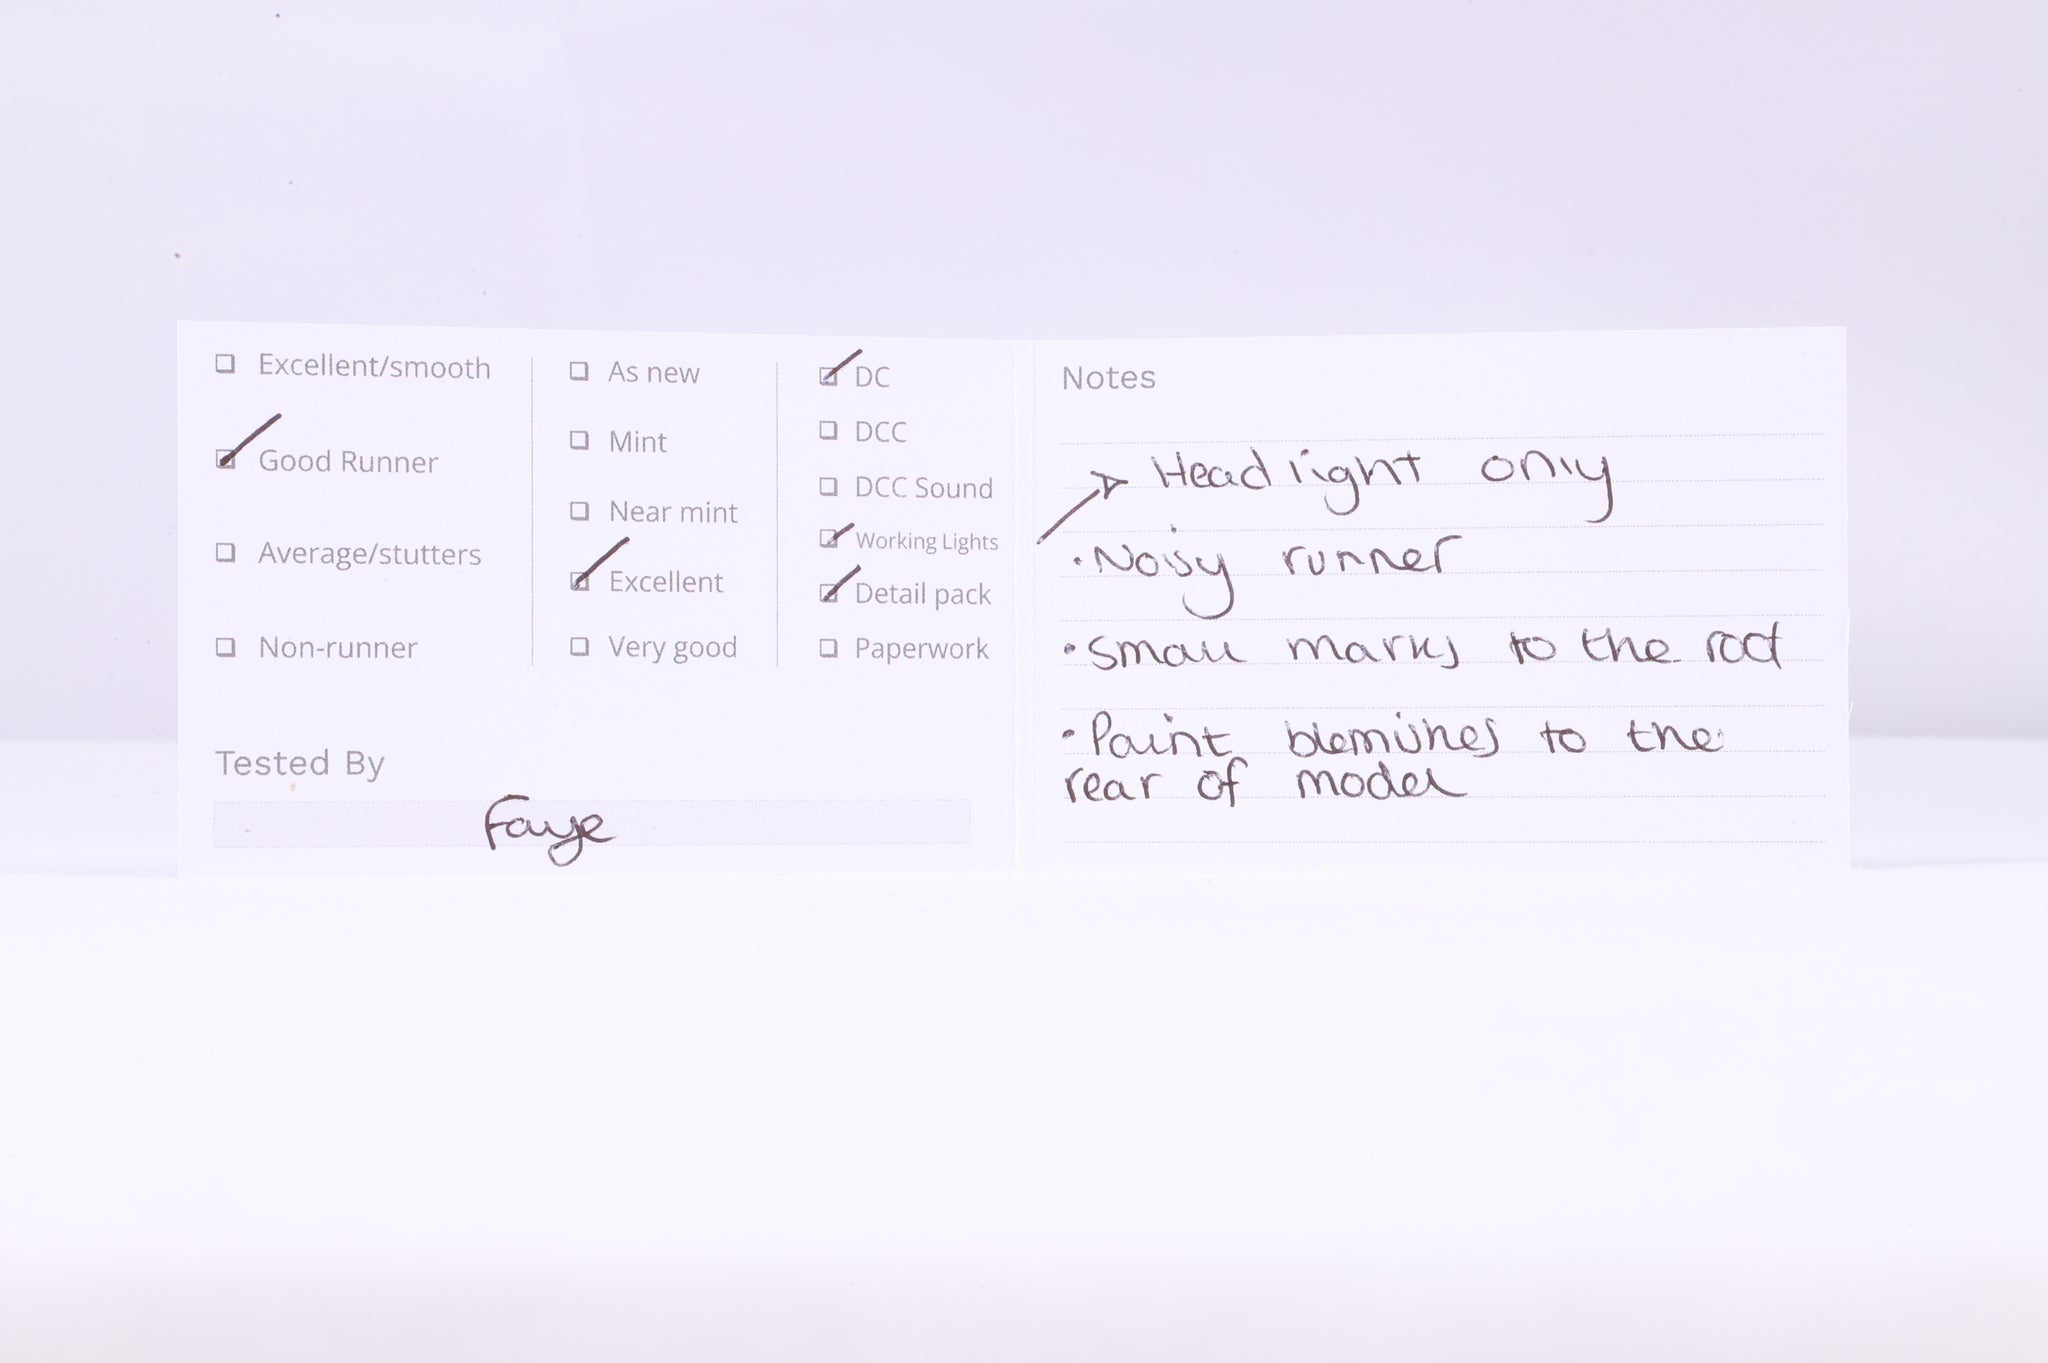 Excellent/smooth
Good Runner
Average/stutters
Non-runner
As new
Mint
Near mint
Excellent
Very good
DC
DCC
DCC Sound
Working Lights
Detail pack
Paperwork
Tested By
Faye
Notes
Headlight only
• Noisy runner
• Small marks to the roof
• Paint blemishes to the
rear of model